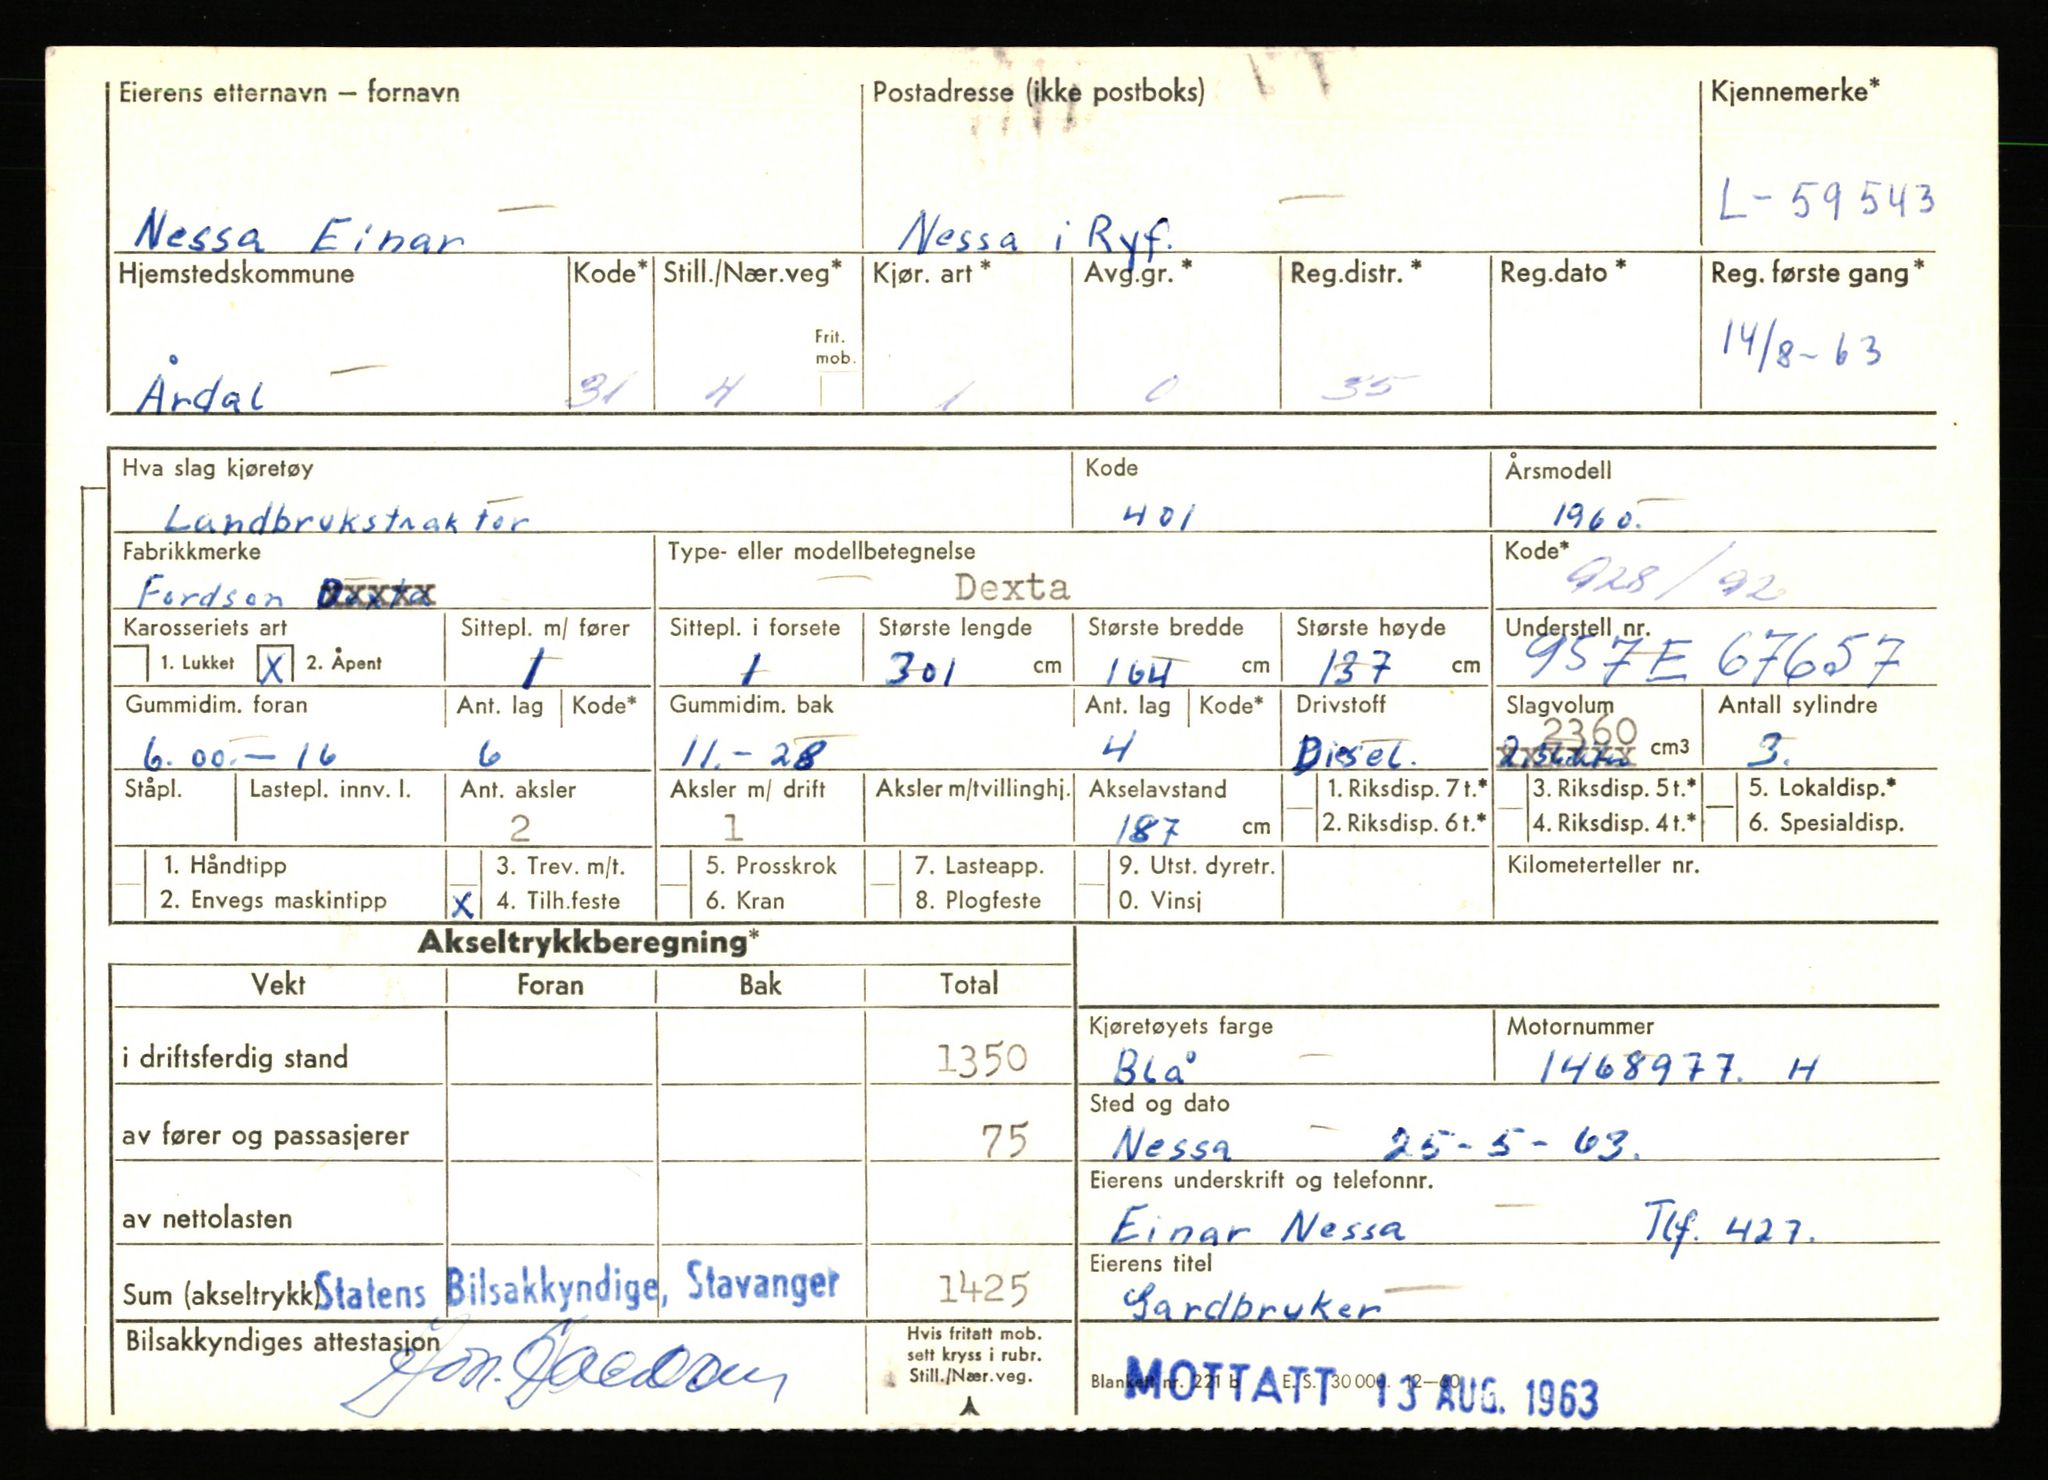 Eierens etternavn – fornavn Postadresse (ikke postboks) Kjennemerke*
Nessa Einar Nessa i Ryf. L-59543
Hjemstedskommune Kode* Still./Nær.veg* Kjør. art* Avg.gr.* Reg.distr.* Reg.dato* Reg. første gang*
Frit.
mob.
Årdal 31 4 1 0 35 14/8-63
Hva slag kjøretøy Kode Årsmodell
Landbrukstraktor 401 1960.
Fabrikkmerke Type- eller modellbetegnelse Kode*
Fordson Dexta 928/92
Karosseriets art Sittepl. m/ fører Sittepl. i forsete Største lengde Største bredde Største høyde Understell nr.
1. Lukket X 2. Åpent 1 1 301 cm 164 cm 137 cm 957E 67657
Gummidim. foran Ant. lag Kode* Gummidim. bak Ant. lag Kode* Drivstoff Slagvolum Antall sylindre
6.00.-16 6 11.-28 4 Diesel. 2360 cm3 3.
Ståpl. Lastepl. innv. l. Ant. aksler Aksler m/ drift Aksler m/tvillinghj. Akselavstand 1. Riksdisp. 7 t.* 3. Riksdisp. 5 t.* 5. Lokaldisp.*
2 1 187 cm 2. Riksdisp. 6 t.* 4. Riksdisp. 4 t.* 6. Spesialdisp.
1. Håndtipp 3. Trev. m/t. 5. Prosskrok 7. Lasteapp. 9. Utst. dyretr. Kilometerteller nr.
2. Envegs maskintipp X 4. Tilh.feste 6. Kran 8. Plogfeste 0. Vinsj
Akseltrykkberegning*
Vekt Foran Bak Total
i driftsferdig stand 1350
av fører og passasjerer 75
av nettolasten
Sum (akseltrykk) Statens Bilsakkyndige, Stavanger 1425
Bilsakkyndiges attestasjon
Hvis fritatt mob.
sett kryss i rubr.
Still./Nær.veg.
Kjøretøyets farge Motornummer
Blå 1468977. H
Sted og dato
Nessa 25-5-63.
Eierens underskrift og telefonnr.
Einar Nessa Tlf. 427.
Eierens titel
Gardbruker
Blankett nr. 221 b E. S. 30 000. 12–60
MOTTATT 13 AUG. 1963